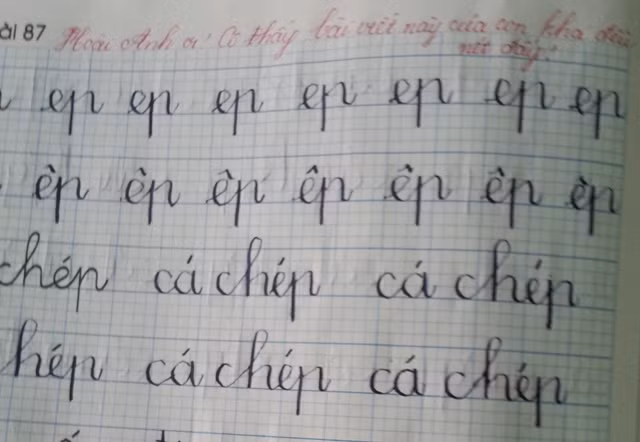 ài 87 Hoài Anh ơi! Cô thấy bài viết này của con khá đều
nét đấy!
ep ep ep ep ep ep ep
êp êp êp êp êp êp êp
chép cá chép cá chép
hép cá chép cá chép